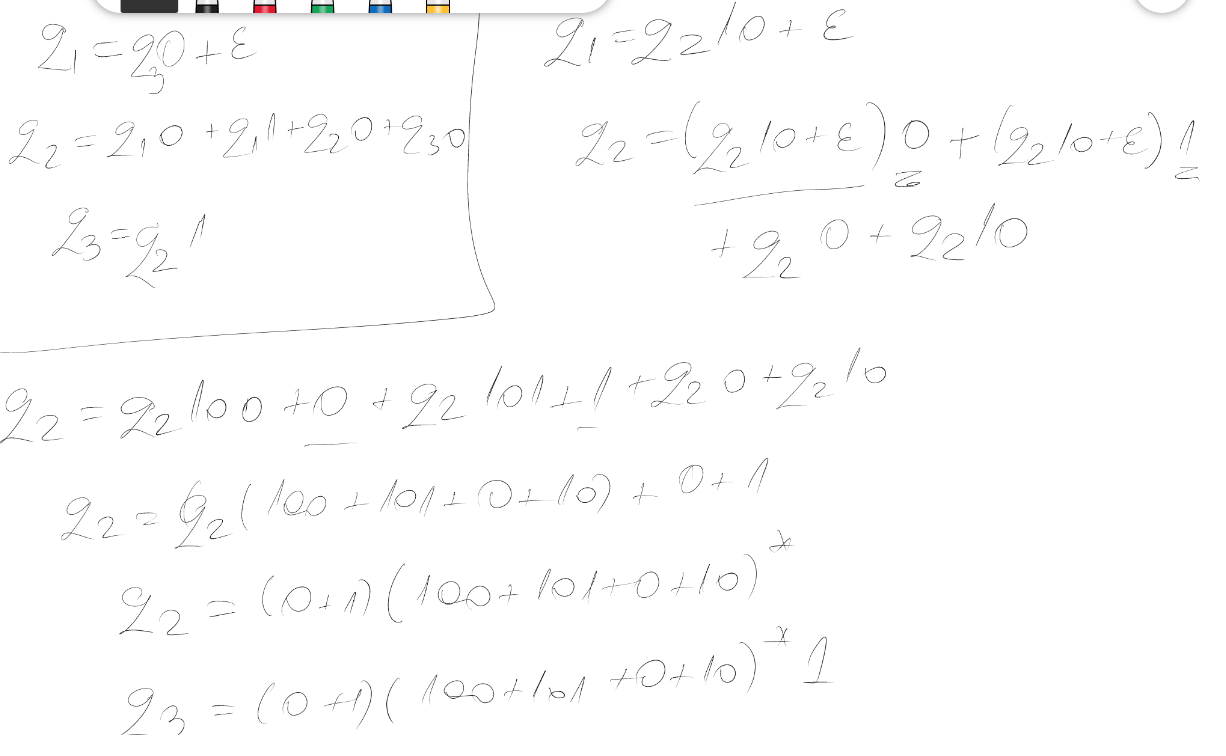 q₁ = q₃0 + ε
q₂ = q₁0 + q₁1 + q₂0 + q₃0
q₃ = q₂1
q₁ = q₂10 + ε
q₂ = (q₂10 + ε)0 + (q₂10 + ε)1
+ q₂0 + q₂10
q₂ = q₂100 + 0 + q₂101 + 1 + q₂0 + q₂10
q₂ = q₂(100 + 101 + 0 + 10) + 0 + 1
q₂ = (0 + 1)(100 + 101 + 0 + 10)*
q₃ = (0 + 1)(100 + 101 + 0 + 10)*1